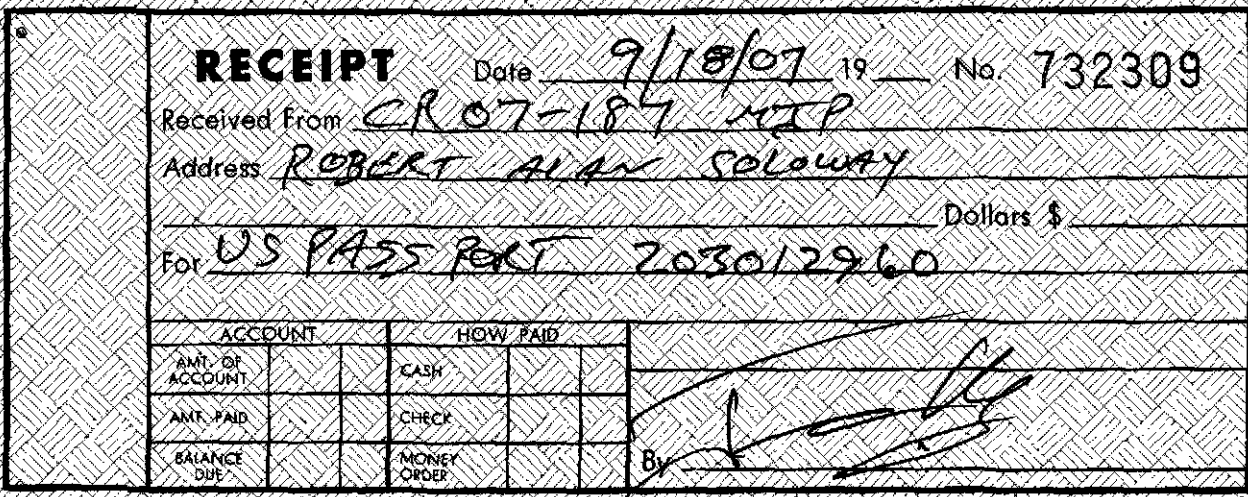 RECEIPT Date 9/18/07 19 No. 732309
Received From CR 07-187 MJP
Address ROBERT ALAN SOLOWAY
Dollars $
For US PASSPORT 203012960
ACCOUNT HOW PAID
AMT. OF ACCOUNT CASH
AMT. PAID CHECK
BALANCE DUE MONEY ORDER
By